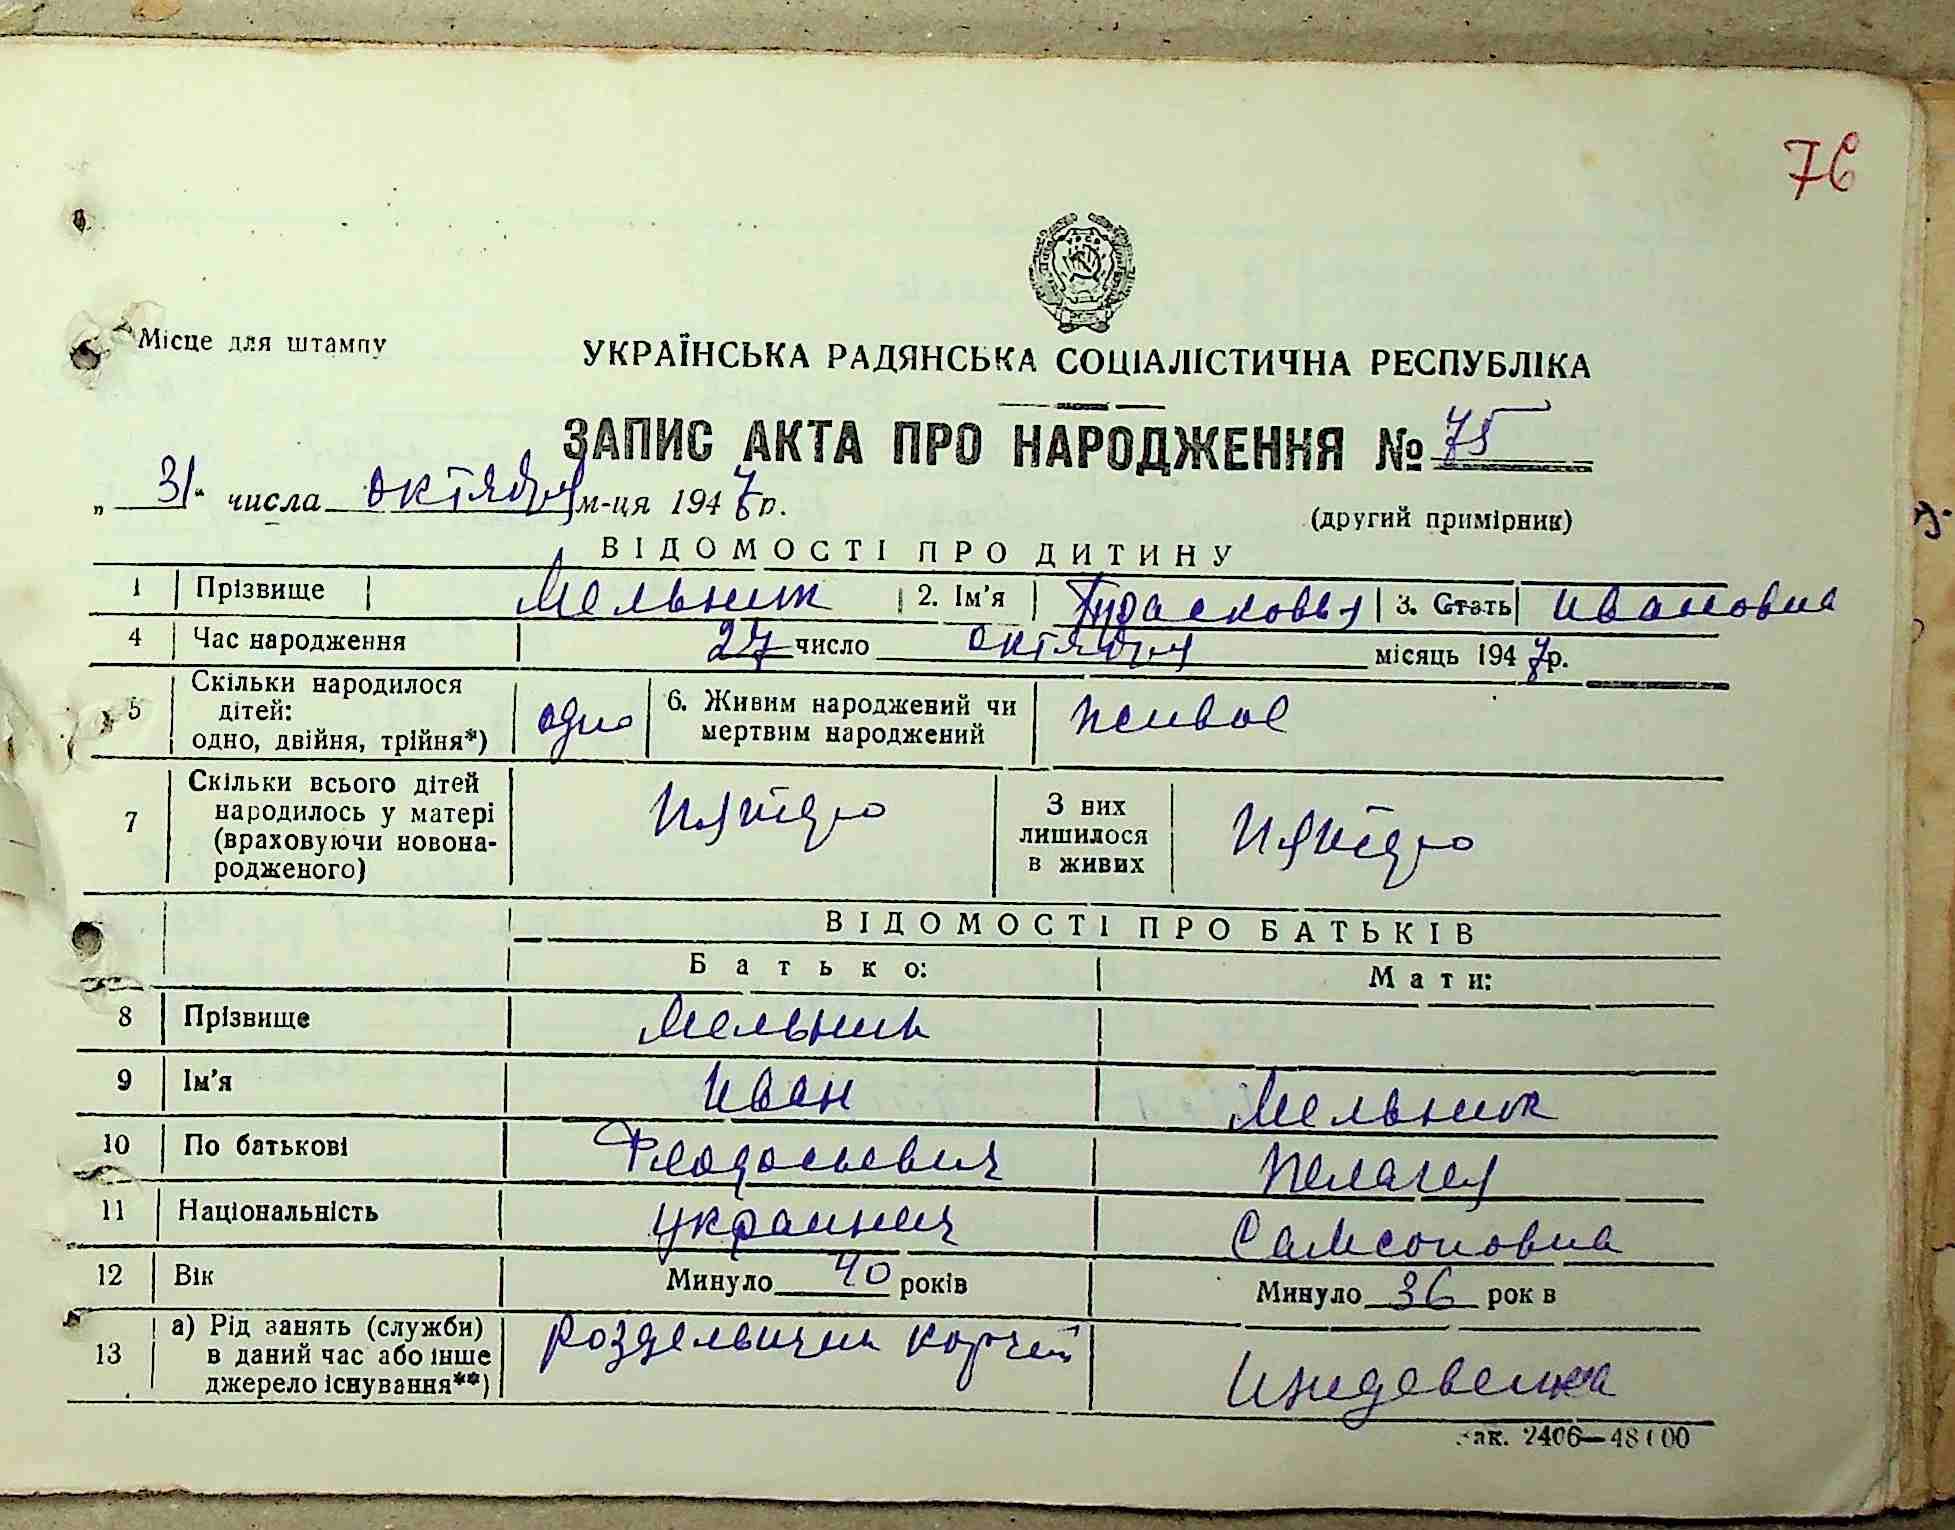 76
Місце для штампу
УКРАЇНСЬКА РАДЯНСЬКА СОЦІАЛІСТИЧНА РЕСПУБЛІКА
ЗАПИС АКТА ПРО НАРОДЖЕННЯ № 75
„ 31 " числа октября м-ця 1947 р.
(другий примірник)
ВІДОМОСТІ ПРО ДИТИНУ
1 Прізвище Мельник 2. Ім'я Прасковья 3. Стать Ивановна
4 Час народження 27 число октября місяць 1947 р.
5 Скільки народилося дітей: одно, двійня, трійня*) одно 6. Живим народжений чи мертвим народжений живое
7 Скільки всього дітей народилось у матері (враховуючи новонародженого) пятеро З них лишилося в живих пятеро
ВІДОМОСТІ ПРО БАТЬКІВ
Батько: Мати:
8 Прізвище Мельник
9 Ім'я Иван Мельник
10 По батькові Феодосьевич Пелагея
11 Національність украинец Самсоновна
12 Вік Минуло 40 років Минуло 36 рок в
13 а) Рід занять (служби) в даний час або інше джерело існування**) Иждевенка
Зак. 2406—48000